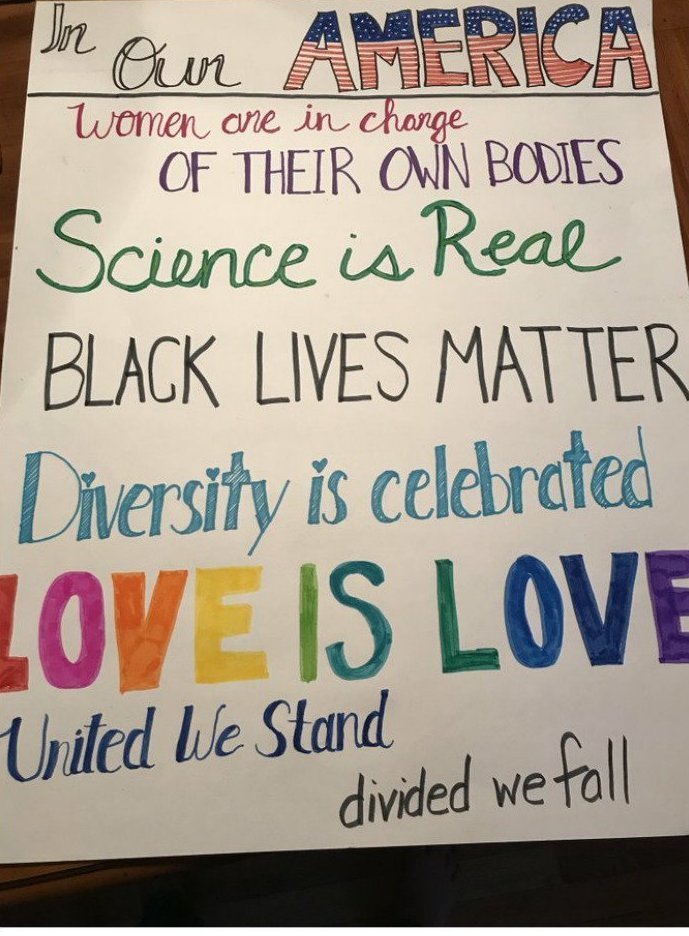 In Our AMERICA
Women are in charge
OF THEIR OWN BODIES
Science is Real
BLACK LIVES MATTER
Diversity is celebrated
LOVE IS LOVE
United We Stand
divided we fall